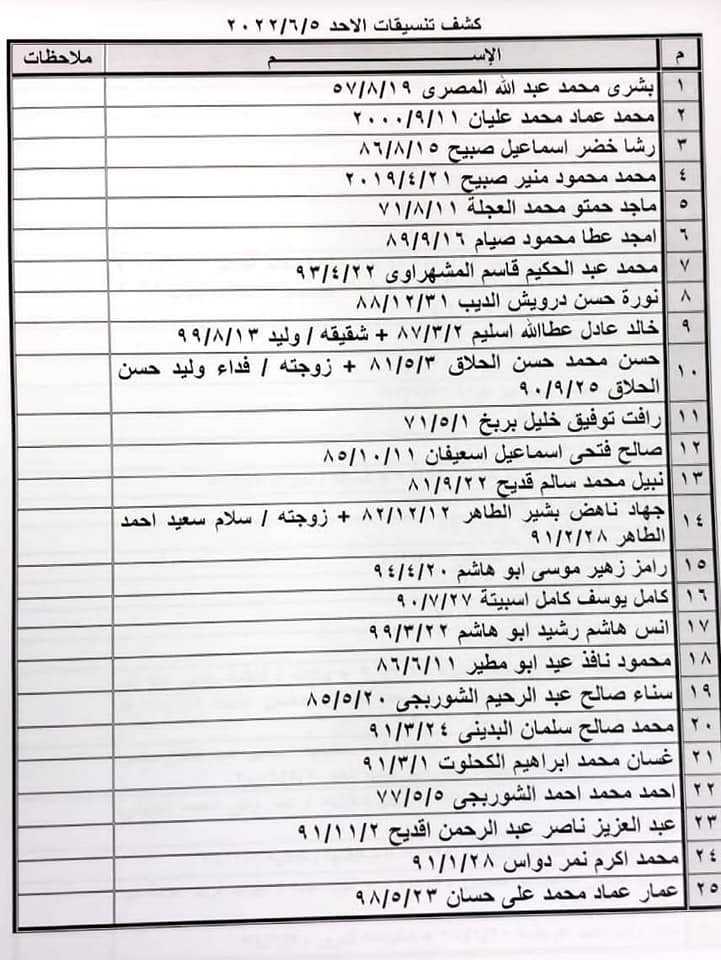 كشف تنسيقات الاحد ٢٠٢٢/٦/٥
م الإســـــــــم ملاحظات
١ بشرى محمد عبد الله المصرى ٥٧/٨/١٩
٢ محمد عماد محمد عليان ٢٠٠٠/٩/١١
٣ رشا خضر اسماعيل صبيح ٨٦/٨/١٥
٤ محمد محمود منير صبيح ٢٠١٩/٤/٢١
٥ ماجد حمتو محمد العجلة ٧١/٨/١١
٦ امجد عطا محمود صيام ٨٩/٩/١٦
٧ محمد عبد الحكيم قاسم المشهراوى ٩٣/٤/٢٢
٨ نورة حسن درويش الديب ٨٨/١٢/٣١
٩ خالد عادل عطاالله اسليم ٨٧/٣/٢ + شقيقه / وليد ٩٩/٨/١٣
١٠ حسن محمد حسن الحلاق ٨١/٥/٣ + زوجته / فداء وليد حسن
الحلاق ٩٠/٩/٢٥
١١ رافت توفيق خليل بربخ ٧١/٥/١
١٢ صالح فتحى اسماعيل اسعيفان ٨٥/١٠/١١
١٣ نبيل محمد سالم قديح ٨١/٩/٢٢
١٤ جهاد ناهض بشير الطاهر ٨٢/١٢/١٢ + زوجته / سلام سعيد احمد
الطاهر ٩١/٢/٢٨
١٥ رامز زهير موسى ابو هاشم ٩٤/٤/٢٠
١٦ كامل يوسف كامل اسبيتة ٩٠/٧/٢٧
١٧ انس هاشم رشيد ابو هاشم ٩٩/٣/٢٢
١٨ محمود نافذ عيد ابو مطير ٨٦/٦/١١
١٩ سناء صالح عبد الرحيم الشوربجى ٨٥/٥/٢٠
٢٠ محمد صالح سلمان البدينى ٩١/٣/٢٤
٢١ غسان محمد ابراهيم الكحلوت ٩١/٣/١
٢٢ احمد محمد احمد الشوربجى ٧٧/٥/٥
٢٣ عبد العزيز ناصر عبد الرحمن اقديح ٩١/١١/٢
٢٤ محمد اكرم نمر دواس ٩١/١/٢٨
٢٥ عمار عماد محمد على حسان ٩٨/٥/٢٣